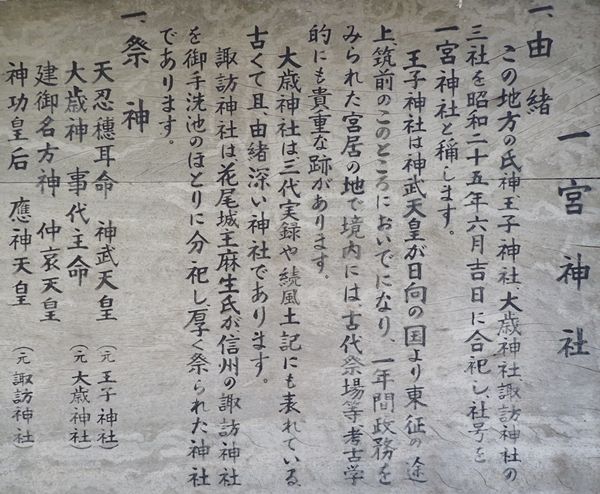 一宮神社
一、由緒
この地方の氏神、王子神社、大歳神社、諏訪神社の
三社を昭和二十五年六月吉日に合祀し、社号を
一宮神社と稱します。
王子神社は神武天皇が日向の国より東征の途
上、筑前のこのところにおいでになり、一年間政務を
みられた宮居の地で境内には、古代祭場等考古学
的にも貴重な跡があります。
大歳神社は三代実録や続風土記にも表れている、
古くて且、由緒深い神社であります。
諏訪神社は花尾城主麻生氏が信州の諏訪神社
を御手洗池のほとりに分祀し厚く祭られた神社
であります。
一、祭神
天忍穗耳命 神武天皇 (元 王子神社)
大歳神 事代主命 (元 大歳神社)
建御名方神 仲哀天皇
神功皇后 應神天皇 (元 諏訪神社)